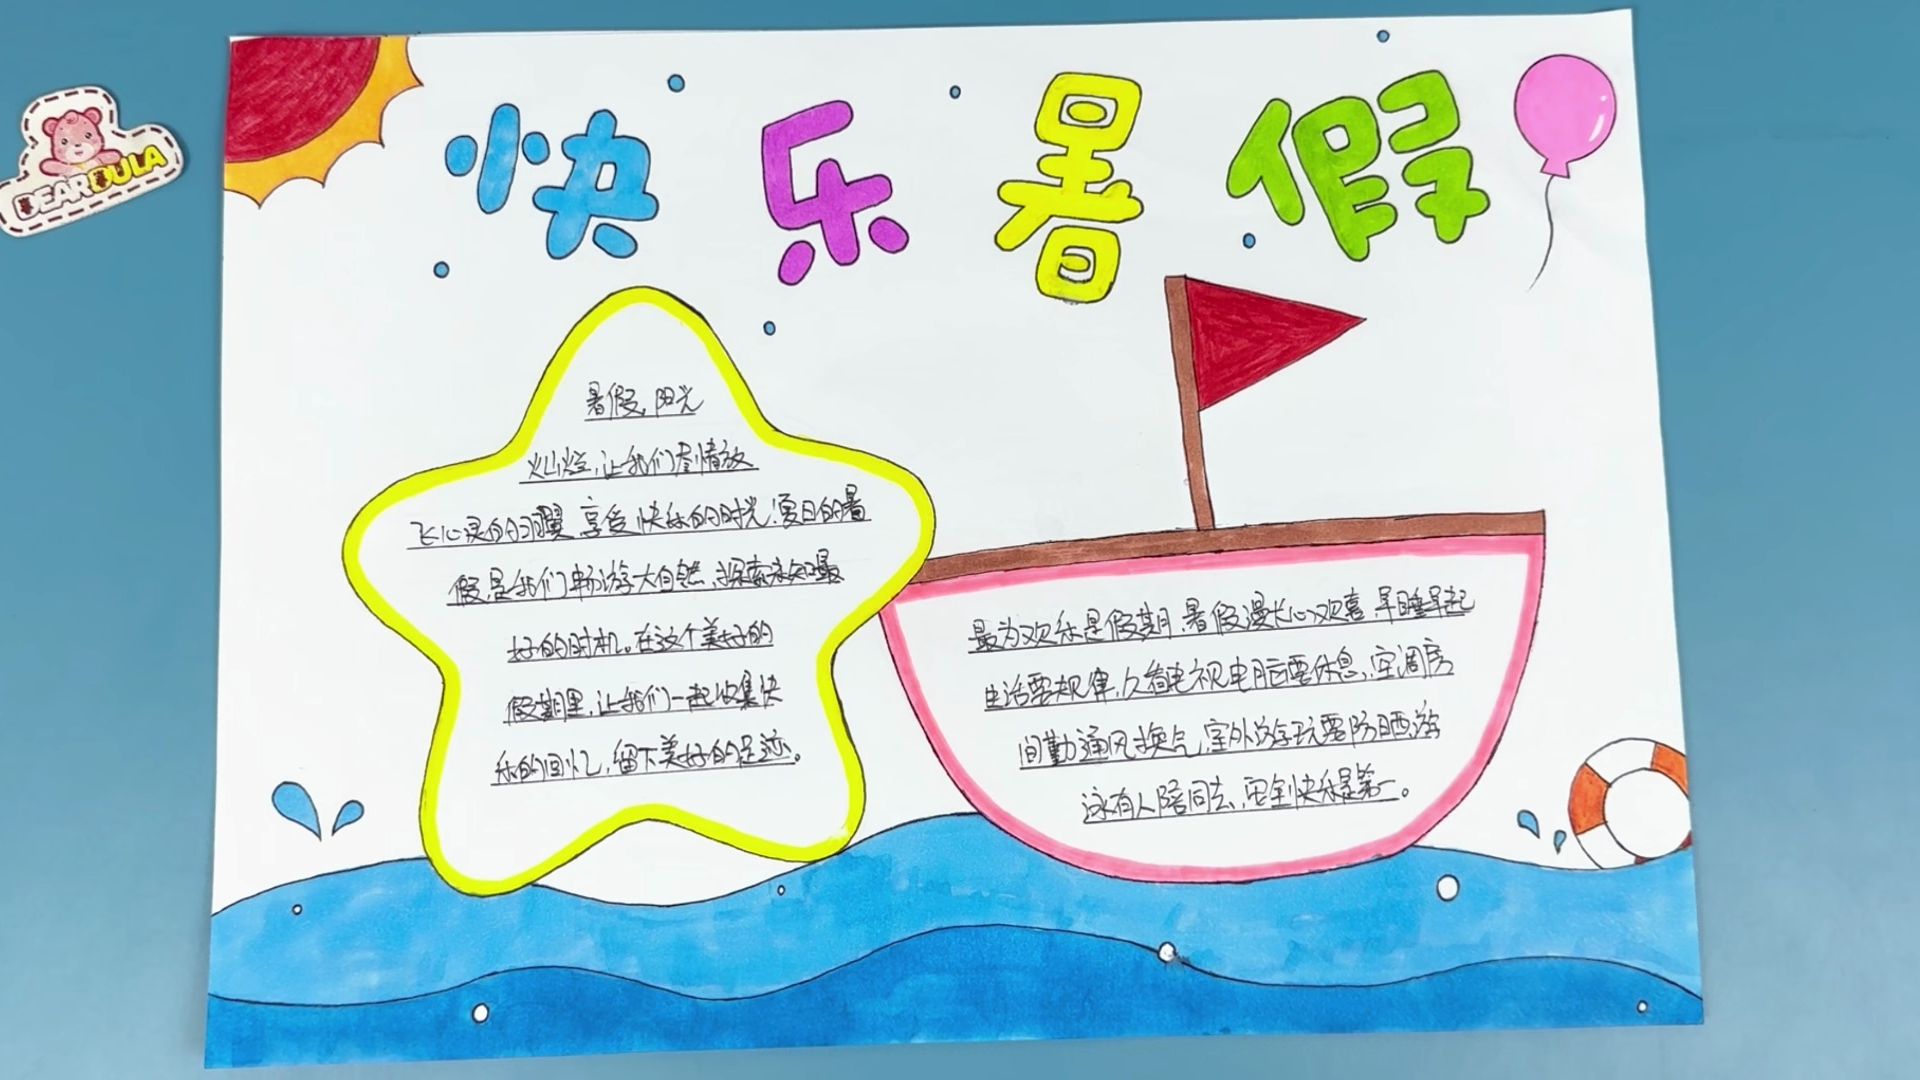 BEARDULA
快乐暑假
暑假，阳光
灿烂，让我们尽情放
飞心灵的羽翼，享受快乐的时光！夏日的暑
假是我们畅游大自然、探索未知最
好的时机。在这个美好的
假期里，让我们一起收集快
乐的回忆，留下美好的足迹。
最为欢乐是假期，暑假漫长心欢喜，早睡早起
生活要规律，久看电视电脑要休息，空调房
间勤通风换气，室外游玩要防晒，游
泳有人陪同去，安全快乐是第一。